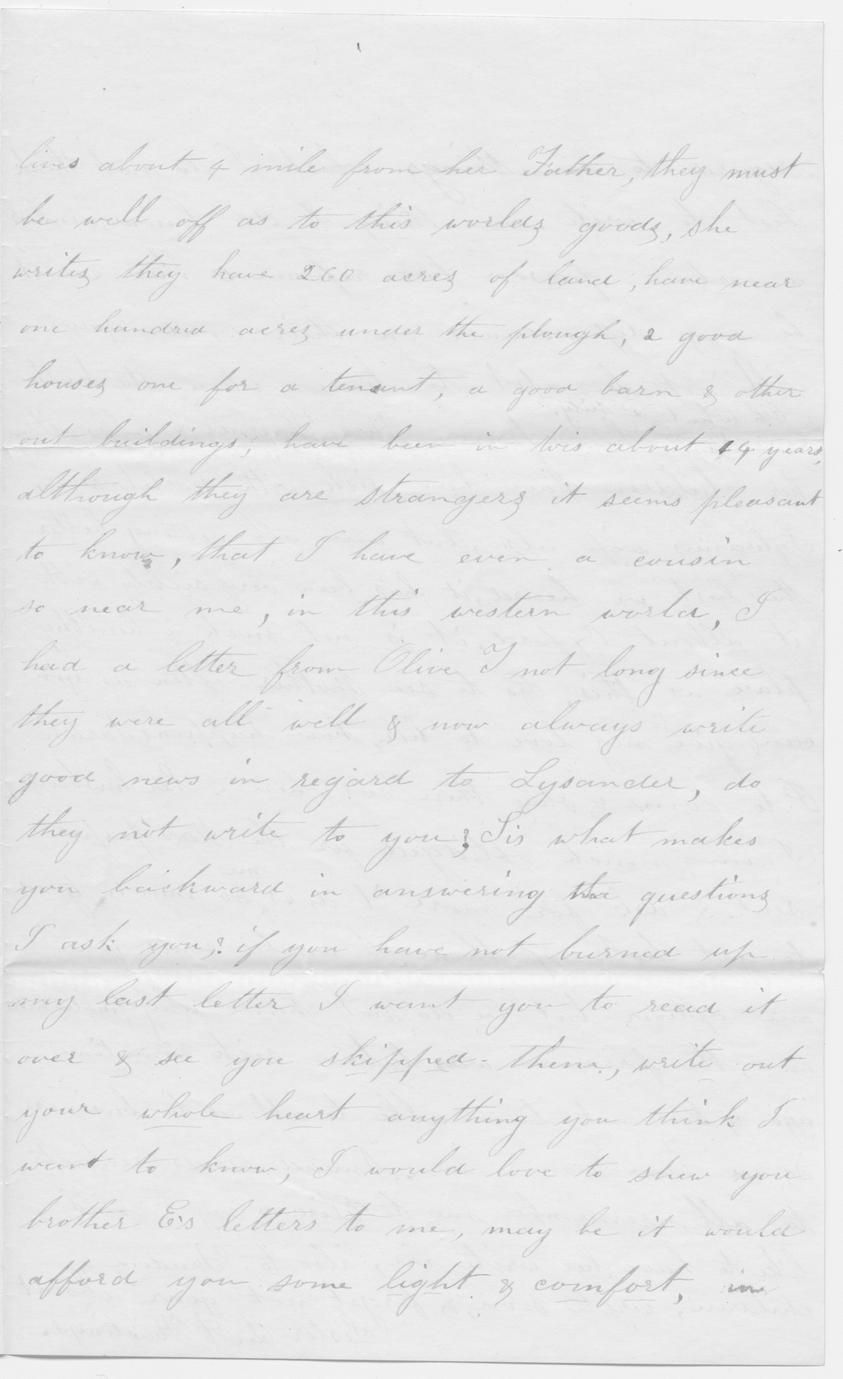 lives about 4 mile from her Father, they must
be well off as to this worlds goods, she
writes they have 260 acres of land, have near
one hundred acres under the plough, 2 good
houses one for a tenant, a good barn & other
out buildings, have been in Wis about 14 years,
although they are strangers it seems pleasant
to know, that I have even a cousin
so near me, in this western world, I
had a letter from Olive T not long since
they were all well & now always write
good news in regard to Lysander, do
they not write to you? Sis what makes
you backward in answering the questions
I ask you? if you have not burned up
my last letter I want you to read it
over & see you skipped them, write out
your whole heart anything you think I
want to know, I would love to shew you
brother E's letters to me, may be it would
afford you some light & comfort, in